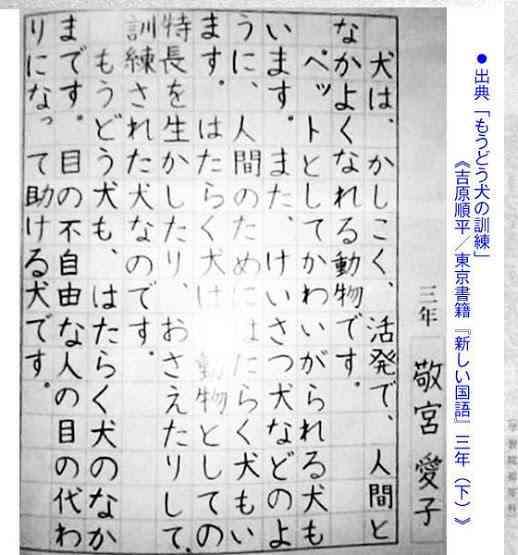 ●出典「もうどう犬の訓練」
《吉原順平／東京書籍『新しい国語』三年（下）》
三年　敬宮　愛子
犬は、かしこく、活発で、人間と
なかよくなれる動物です。
ペットとしてかわいがられる犬も
います。また、けいさつ犬などのよ
うに、人間のためにはたらく犬もい
ます。はたらく犬は、動物としての
特長を生かしたり、おさえたりして、
訓練された犬なのです。
もうどう犬も、はたらく犬のなか
まです。目の不自由な人の目の代わ
りになって助ける犬です。